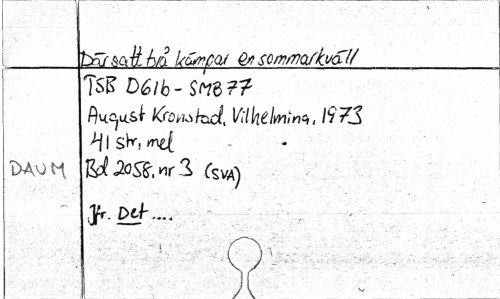 Där satt två kämpar en sommarkväll
TSB D61b - SMB 77
August Kronstad, Vilhelmina, 1973
41 str, mel
DAUM Bd 2058, nr 3 (SVA)
Jfr. Det ....